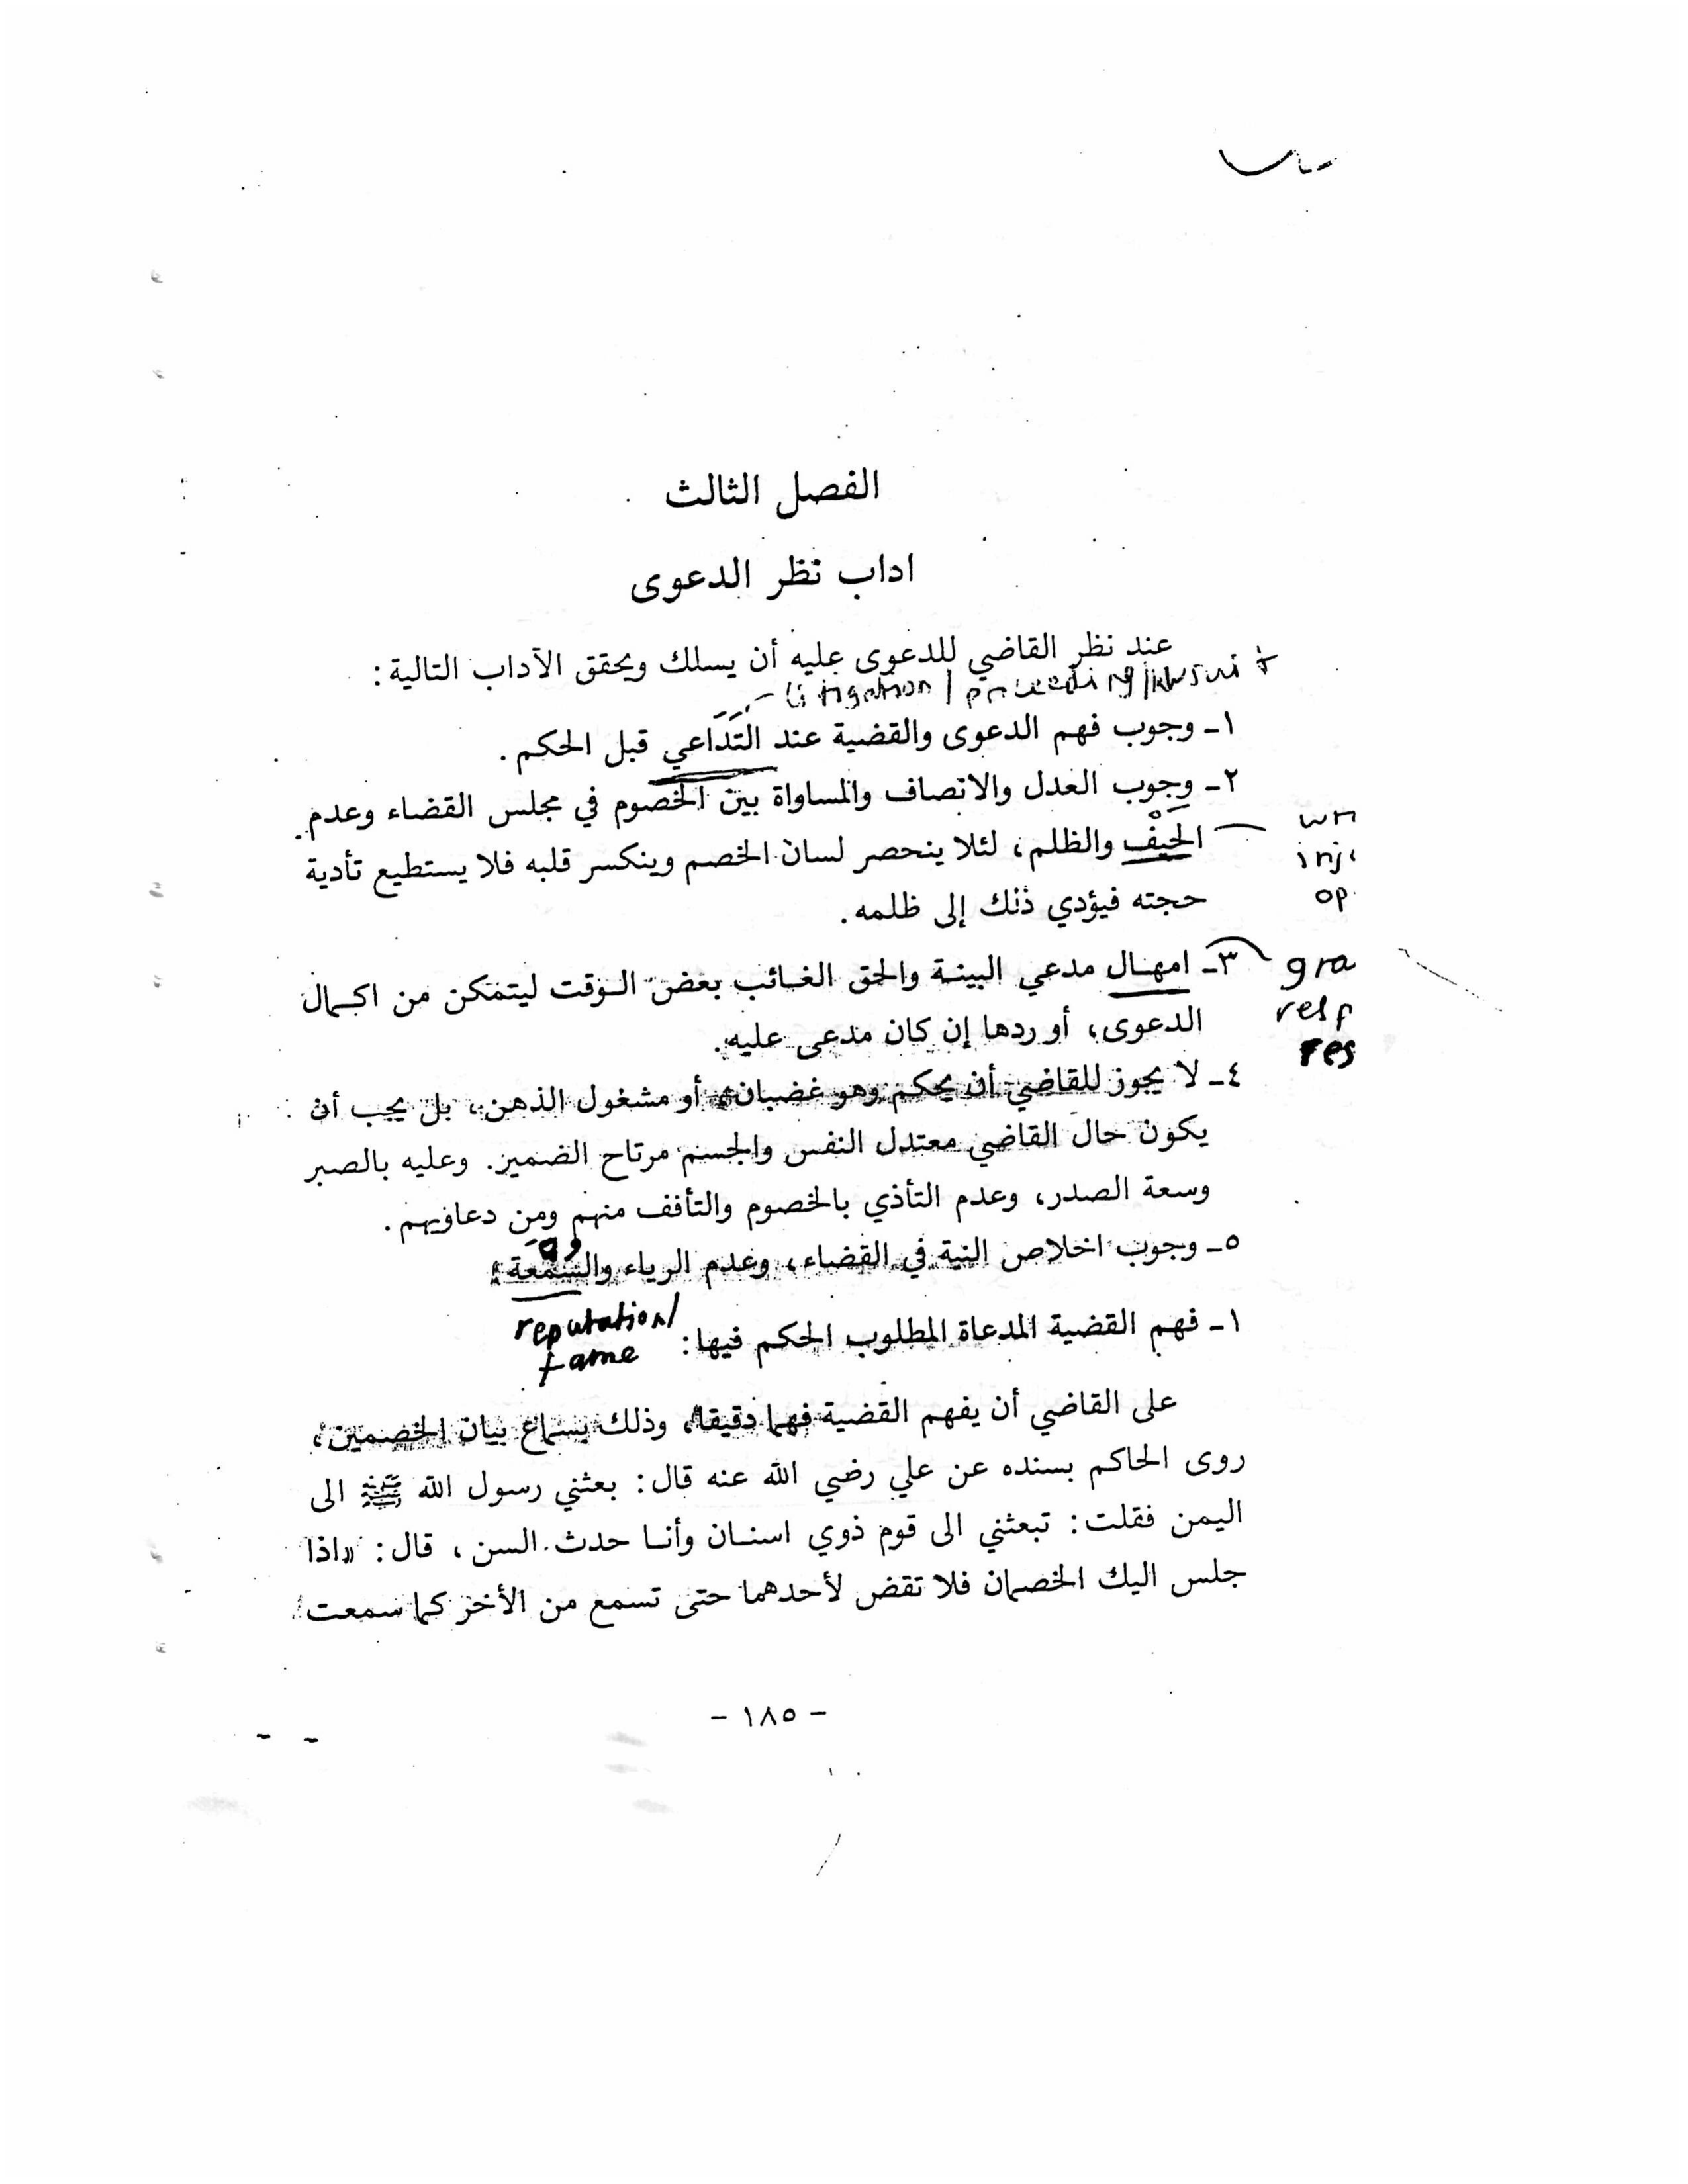 الفصل الثالث
اداب نظر الدعوى
عند نظر القاضي للدعوى عليه أن يسلك ويحقق الآداب التالية:
litigation / proceeding / lawsuit
١ـ وجوب فهم الدعوى والقضية عند التَدَاعي قبل الحكم.
٢ـ وجوب العدل والانصاف والمساواة بين الخصوم في مجلس القضاء وعدم
الحَيْف والظلم، لئلا ينحصر لسان الخصم وينكسر قلبه فلا يستطيع تأدية
حجته فيؤدي ذلك إلى ظلمه.
٣ـ امهال مدعي البينة والحق الغائب بعض الوقت ليتمكن من اكمال
الدعوى، أو ردها إن كان مدعى عليه.
gra
res
٤ـ لا يجوز للقاضي أن يحكم وهو غضبان، أو مشغول الذهن، بل يجب أن
يكون حال القاضي معتدل النفس والجسم مرتاح الضمير. وعليه بالصبر
وسعة الصدر، وعدم التأذي بالخصوم والتأفف منهم ومن دعاويهم.
٥ـ وجوب اخلاص النية في القضاء، وعدم الرياء والسُمْعَة؛
reputation/
fame
١ـ فهم القضية المدعاة المطلوب الحكم فيها:
على القاضي أن يفهم القضية فهما دقيقا، وذلك بسماع بيان الخصمين،
روى الحاكم بسنده عن علي رضي الله عنه قال: بعثني رسول الله ﷺ الى
اليمن فقلت: تبعثني الى قوم ذوي اسنان وأنا حدث السن، قال: «اذا
جلس اليك الخصمان فلا تقض لأحدهما حتى تسمع من الأخر كما سمعت
- ١٨٥ -